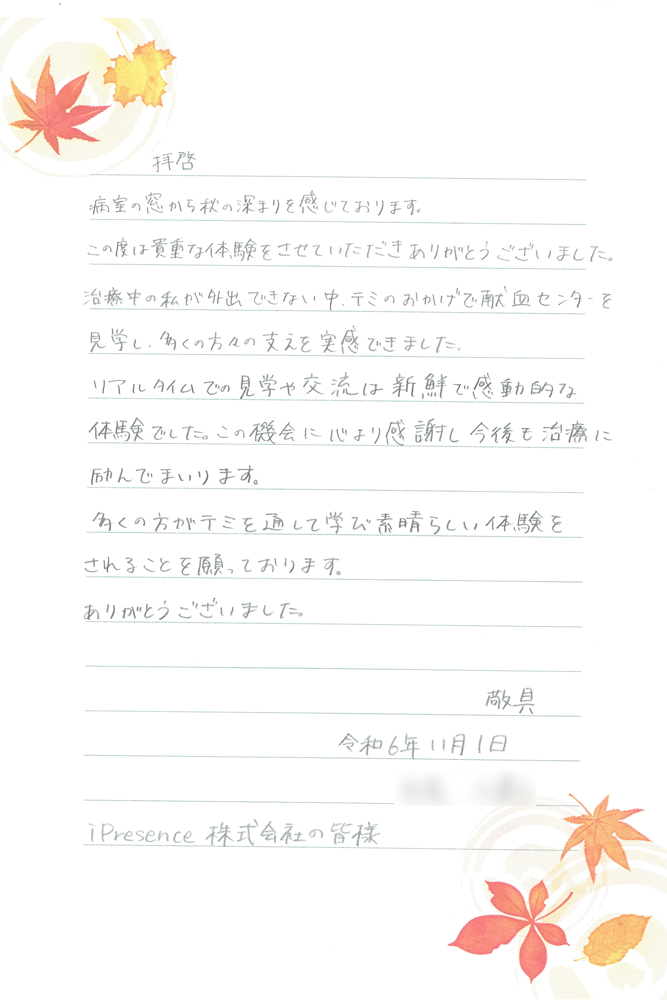 拝啓
病室の窓から秋の深まりを感じております。
この度は貴重な体験をさせていただきありがとうございました。
治療中の私が外出できない中、テミのおかげで献血センターを
見学し、多くの方々の支えを実感できました。
リアルタイムでの見学や交流は新鮮で感動的な
体験でした。この機会に心より感謝し今後も治療に
励んでまいります。
多くの方がテミを通して学び素晴らしい体験を
されることを願っております。
ありがとうございました。
敬具
令和6年11月1日
iPresence 株式会社の皆様